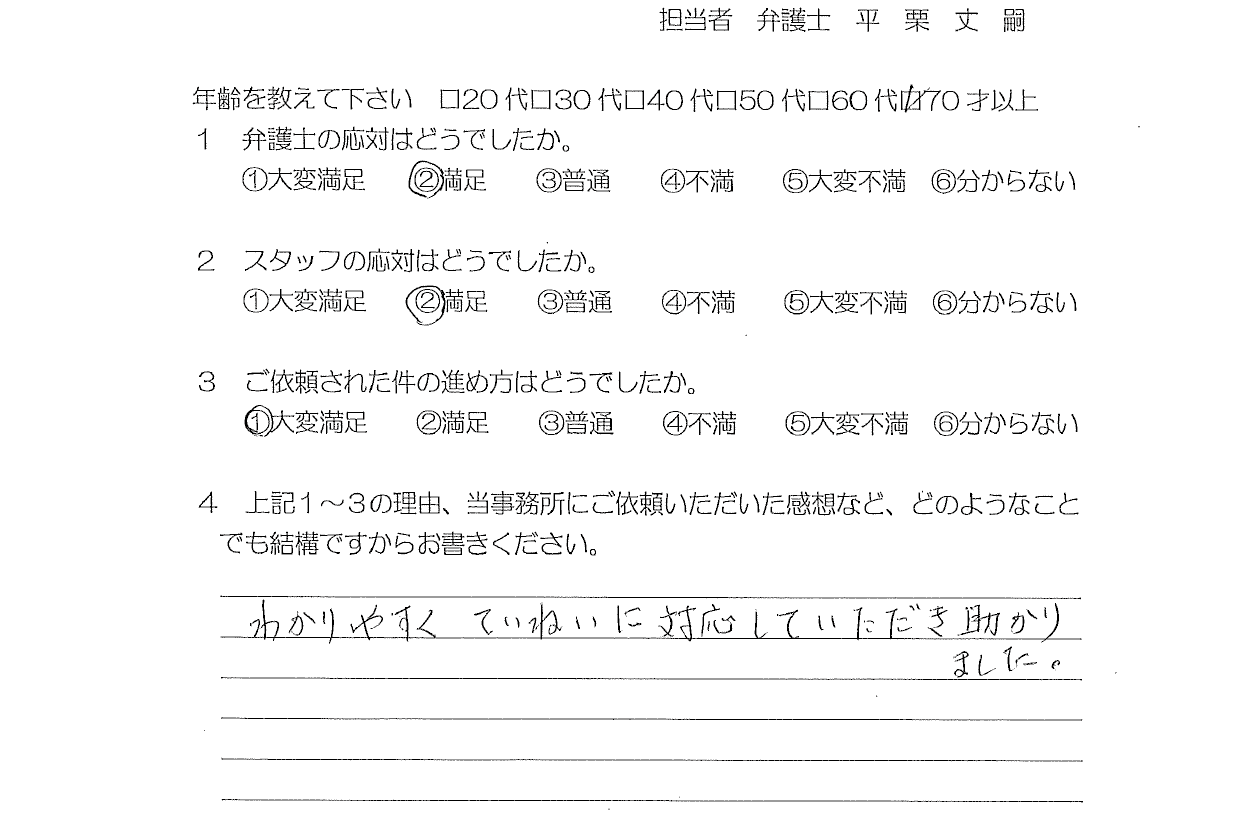 担当者　弁護士　平　栗　丈　嗣
年齢を教えて下さい　□20代□30代□40代□50代□60代□70才以上
1　弁護士の応対はどうでしたか。
①大変満足　②満足　③普通　④不満　⑤大変不満　⑥分からない
2　スタッフの応対はどうでしたか。
①大変満足　②満足　③普通　④不満　⑤大変不満　⑥分からない
3　ご依頼された件の進め方はどうでしたか。
①大変満足　②満足　③普通　④不満　⑤大変不満　⑥分からない
4　上記1～3の理由、当事務所にご依頼いただいた感想など、どのようなこと
でも結構ですからお書きください。
わかりやすく ていねいに対応していただき助かり
ました。